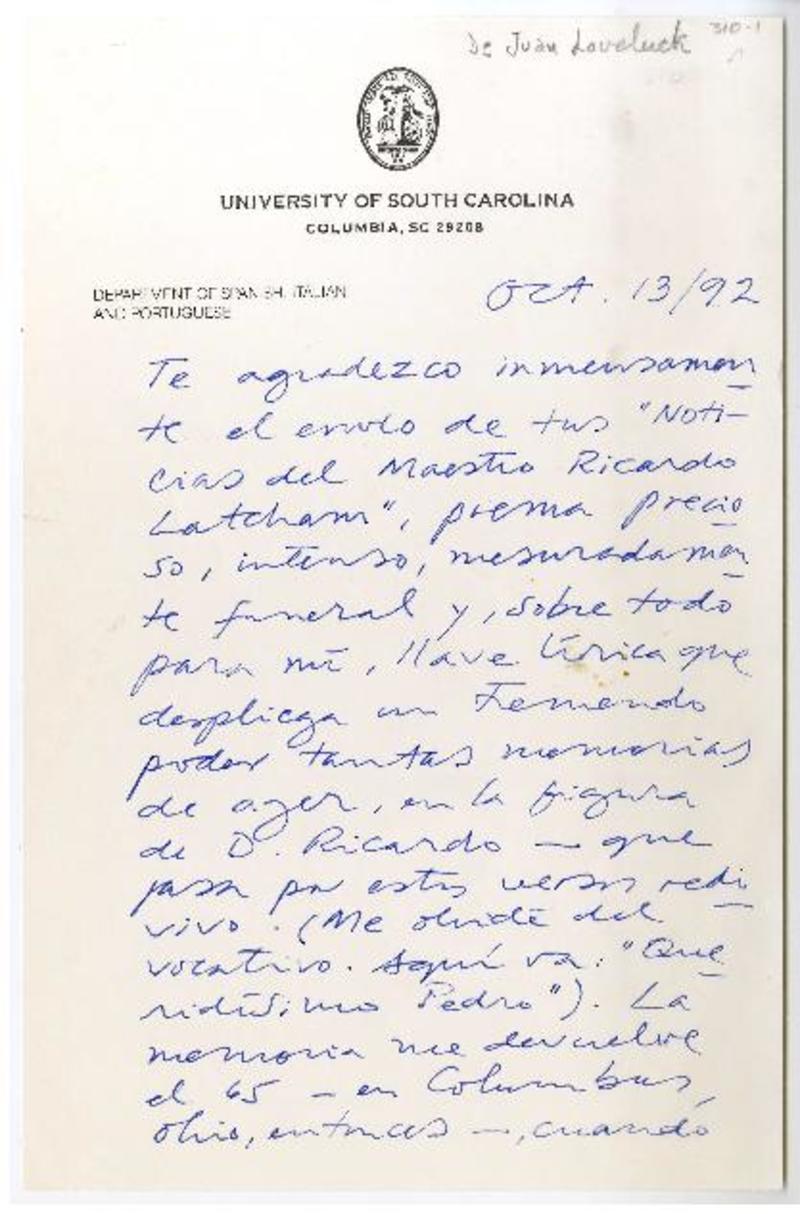 De Juan Loveluck 310-1
UNIVERSITY OF SOUTH CAROLINA
COLUMBIA, SC 29208
DEPARTMENT OF SPANISH, ITALIAN
AND PORTUGUESE
Oct. 13/92
Te agradezco inmensamen
te el envío de tus "Noti-
cias del Maestro Ricardo
Latcham", poema precio
so, intenso, mesuradamen
te funeral y, sobre todo
para mí, llave lírica que
despliega un tremendo
poder tantas memorias
de ayer, en la figura
de D. Ricardo — que
pasa por estos versos redi
vivo. (Me olvidé del
vocativo. Aquí va: "Que
ridísimo Pedro"). La
memoria me devuelve
el 65 — en Columbus,
Ohio, entonces —, cuando